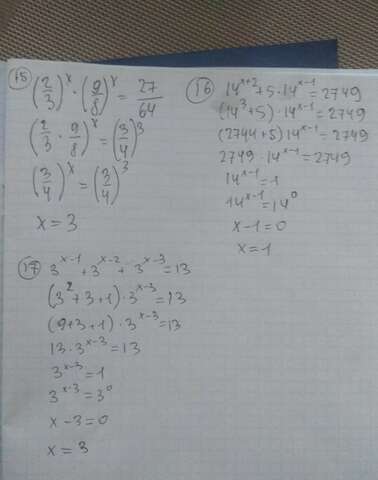 15) (2/3)^x · (9/8)^x = 27/64
(2/3 · 9/8)^x = (3/4)^3
(3/4)^x = (3/4)^3
x = 3
16) 14^(x+2) + 5 · 14^(x-1) = 2749
(14^3 + 5) · 14^(x-1) = 2749
(2744 + 5) 14^(x-1) = 2749
2749 · 14^(x-1) = 2749
14^(x-1) = 1
14^(x-1) = 14^0
x - 1 = 0
x = 1
17) 3^(x-1) + 3^(x-2) + 3^(x-3) = 13
(3^2 + 3 + 1) · 3^(x-3) = 13
(9 + 3 + 1) · 3^(x-3) = 13
13 · 3^(x-3) = 13
3^(x-3) = 1
3^(x-3) = 3^0
x - 3 = 0
x = 3